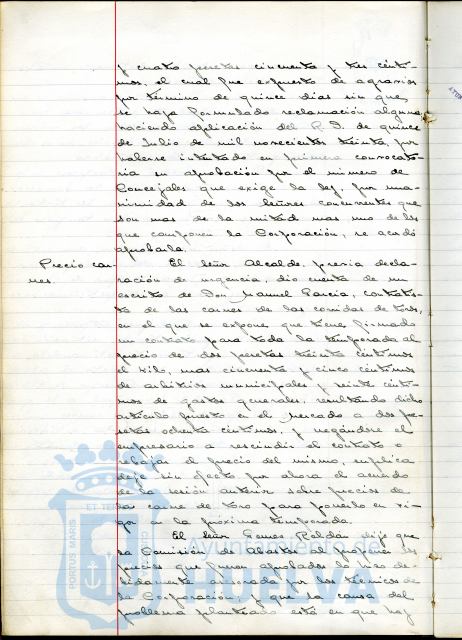 y cuatro pesetas cincuenta y tres cénti-
mos, el cual fue expuesto de agravios
por término de quince dias sin que
se haya formulado reclamación alguna
haciendo aplicación del R. D. de quince
de Julio de mil novecientos treinta, por
haberse intentado en primera convocato-
ria su aprobación por el número de
Concejales que exige la ley, por una-
nimidad de los Señores concurrentes que
son mas de la mitad mas uno de los
que componen la Corporación, se acordó
aprobarla.
Precio car-
nes.
El Señor Alcalde, previa decla-
ración de urgencia, dió cuenta de un
escrito de Don Manuel Garcia, contratis-
ta de las carnes de las corridas de toros,
en el que se expone que tiene firmado
un contrato para toda la temporada al
precio de dos pesetas treinta céntimos
el kilo, mas cincuenta y cinco céntimos
de arbitrios municipales y veinte cénti-
mos de gastos generales, resultando dicho
artículo puesto en el mercado a dos pe-
setas ochenta céntimos, y negándose el
empresario a rescindir el contrato o
rebajar el precio del mismo, suplica
deje sin efecto por ahora el acuerdo
de la sesión anterior sobre precios de
la carne de toro para ponerlo en vi-
gor en la próxima temporada.
El Señor Gomez Roldán dijo que
la Comisión de Abastos al proponer los
precios que fueron aprobados lo hizo de-
bidamente asesorada por los técnicos de
la Corporación, y que la causa del
problema planteado está en que hay
Ayuntamiento de
HUELVA
PORTUS MARIS
ET TERRAE